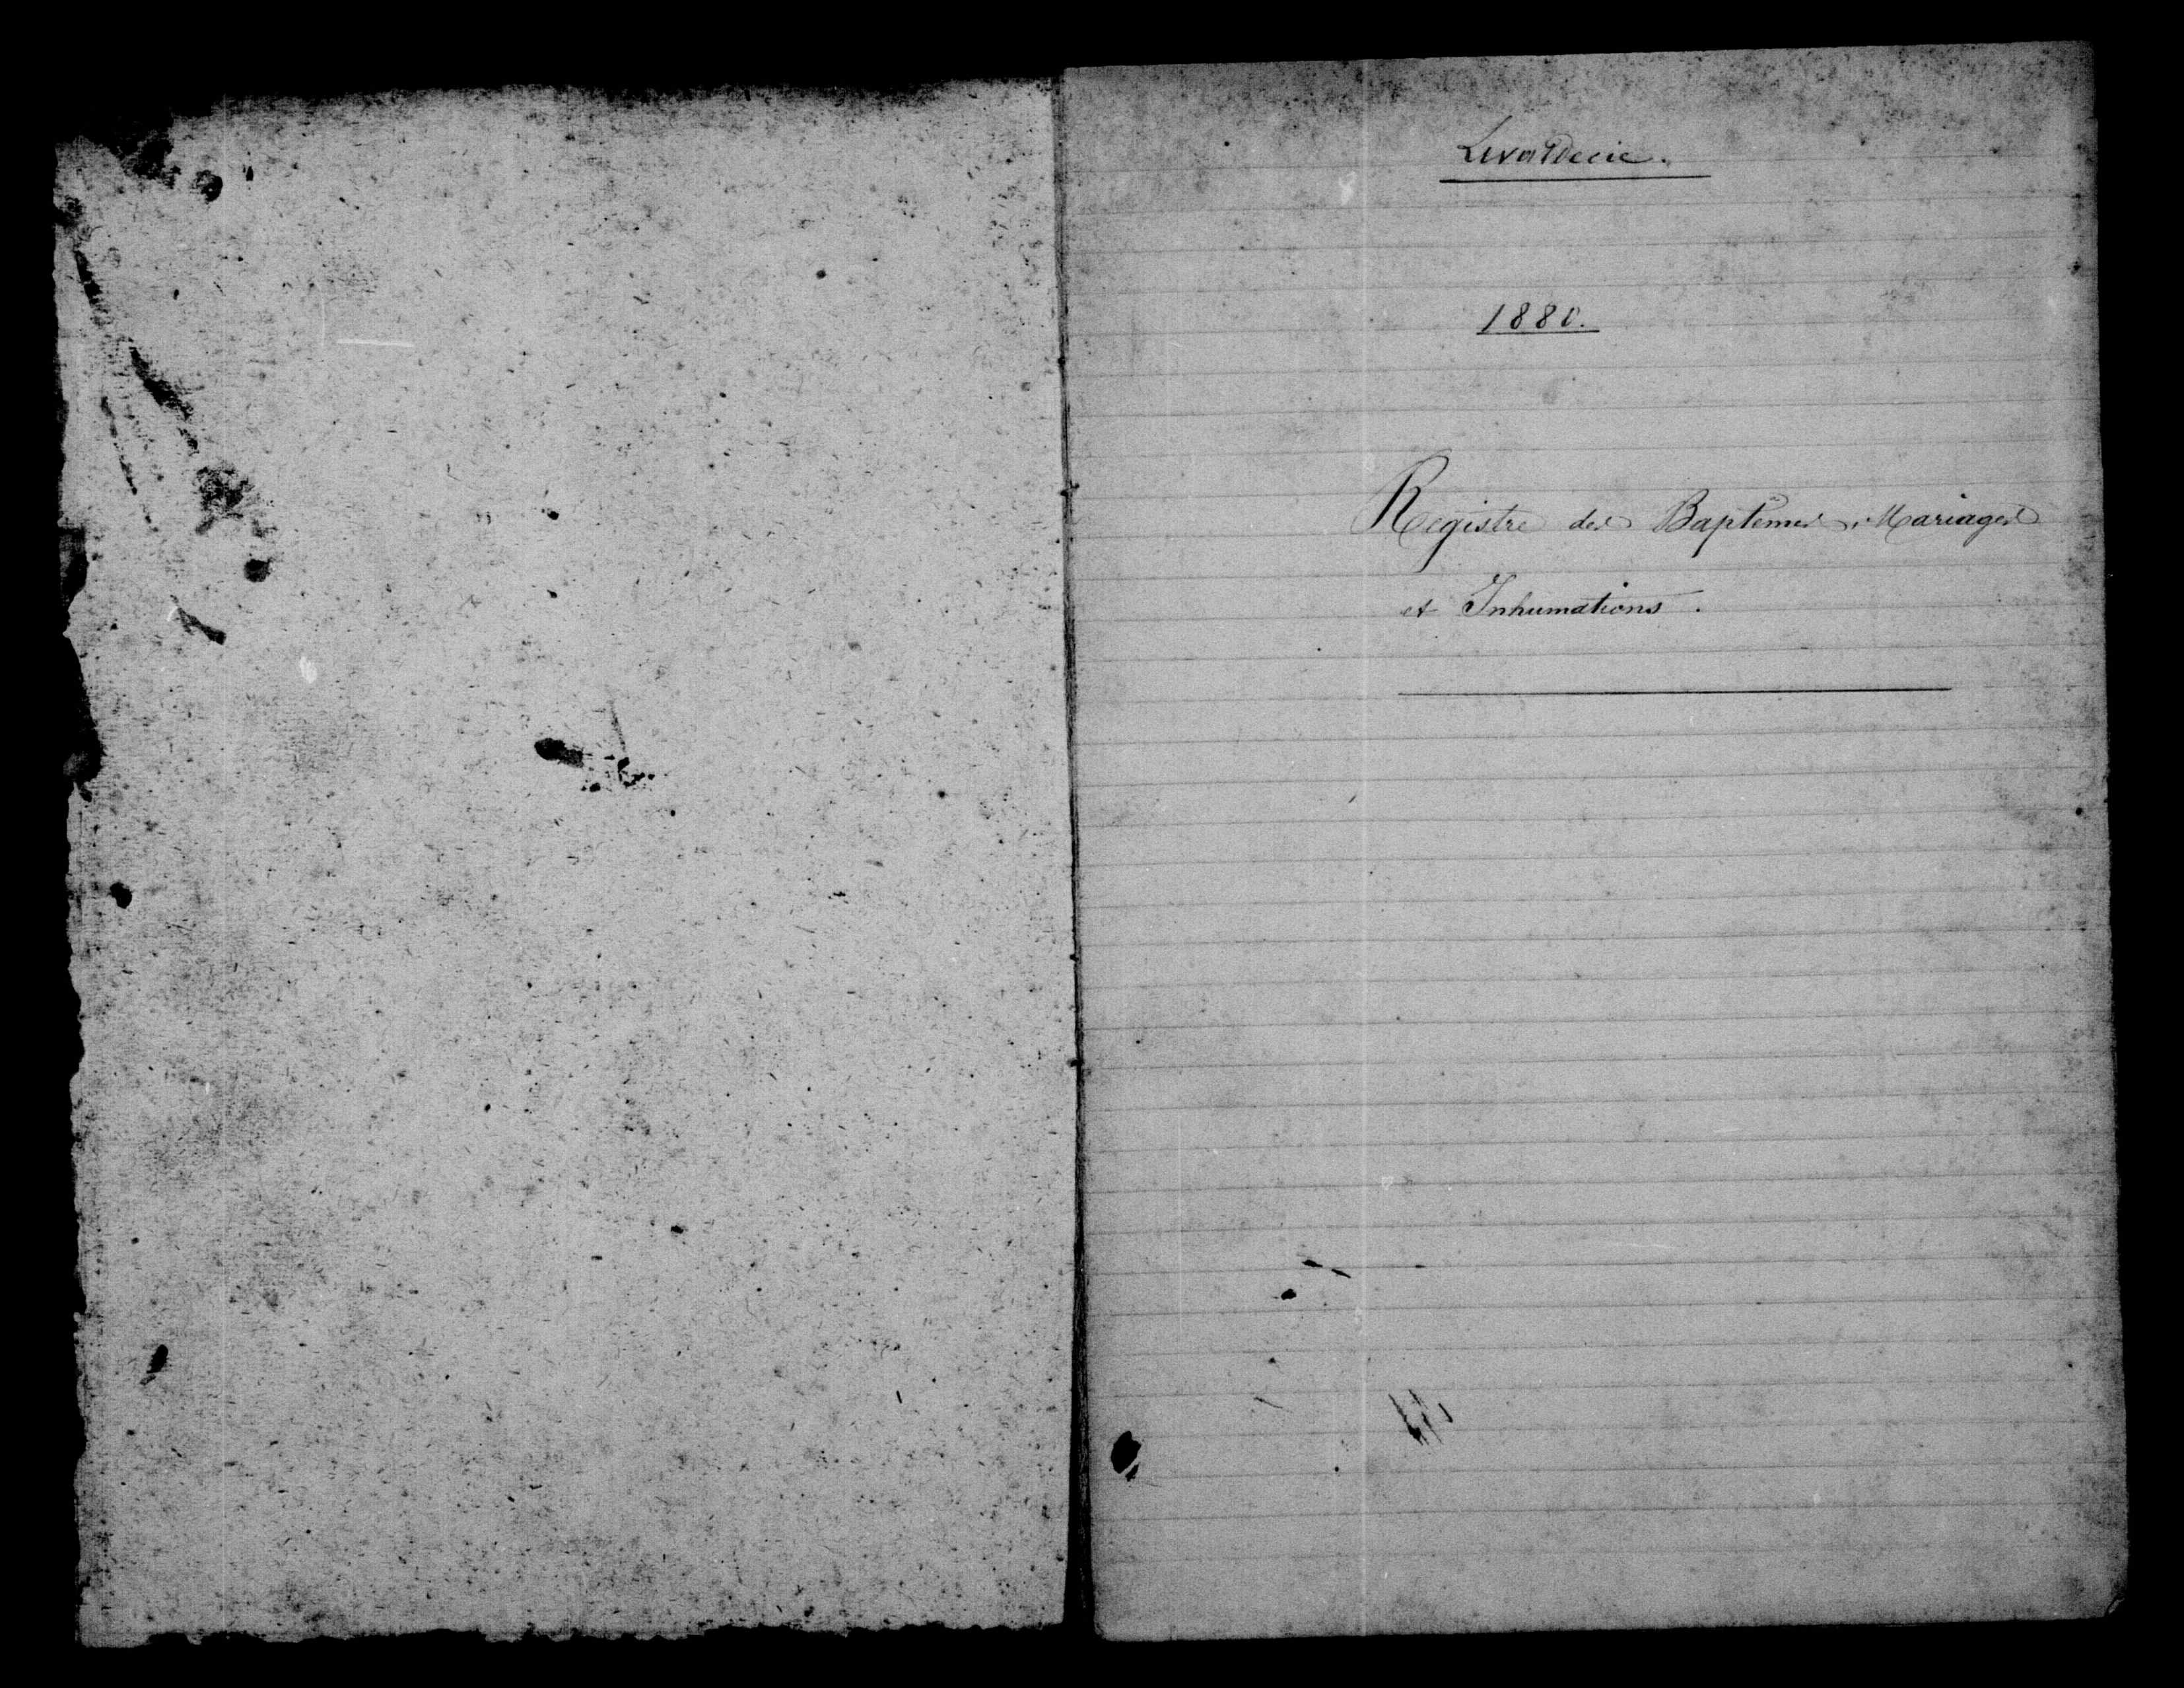 Levaldecie.
1880.
Registre des Baptêmes, Mariages
et Inhumations.